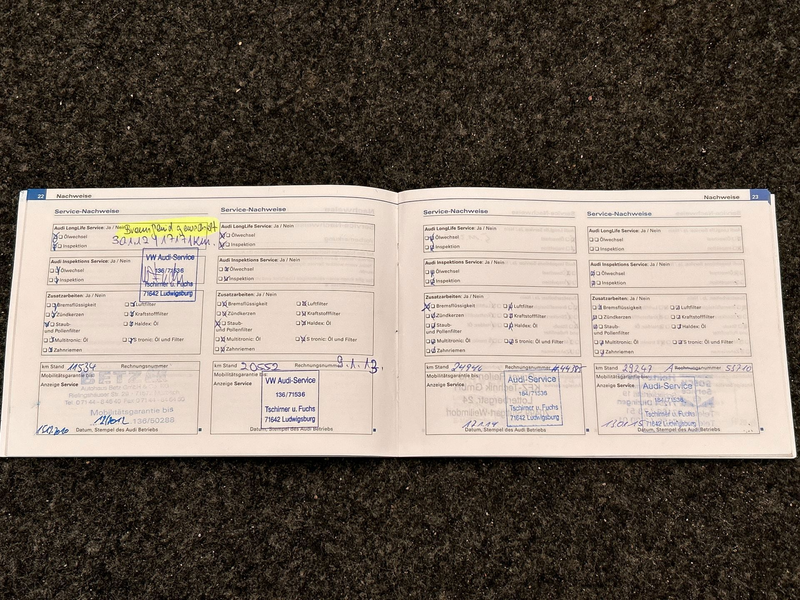 22 Nachweise
Service-Nachweise
Audi LongLife Service: Ja / Nein
Ölwechsel
Inspektion
30.12.
VW Audi-Service
136/71536
Tschirner u. Fuchs
71642 Ludwigsburg
Audi Inspektions Service: Ja / Nein
Ölwechsel
Inspektion
Zusatzarbeiten: Ja / Nein
Bremsflüssigkeit
Luftfilter
Zündkerzen
Kraftstofffilter
Staub- und Pollenfilter
Haldex: Öl
Multitronic: Öl
S tronic: Öl und Filter
Zahnriemen
km Stand 11534 Rechnungsnummer
Mobilitätsgarantie bis:
Anzeige Service
Mobilitätsgarantie bis
136/50288
Datum, Stempel des Audi Betriebs
Service-Nachweise
Bremsflüssigkeit
Luftfilter
Zündkerzen
Kraftstofffilter
Staub- und Pollenfilter
Haldex: Öl
Multitronic: Öl
S tronic: Öl und Filter
Zahnriemen
km Stand 20552 Rechnungsnummer 9.1.13.
Mobilitätsgarantie bis:
Anzeige Service
VW Audi-Service
136/71536
Tschirner u. Fuchs
71642 Ludwigsburg
Datum, Stempel des Audi Betriebs
Nachweise 23
Service-Nachweise
Audi LongLife Service: Ja / Nein
Ölwechsel
Inspektion
Audi Inspektions Service: Ja / Nein
Ölwechsel
Inspektion
Zusatzarbeiten: Ja / Nein
Bremsflüssigkeit
Luftfilter
Zündkerzen
Kraftstofffilter
Staub- und Pollenfilter
Haldex: Öl
Multitronic: Öl
S tronic: Öl und Filter
Zahnriemen
km Stand 24946 Rechnungsnummer
Mobilitätsgarantie bis:
Anzeige Service
Audi-Service
164/71536
Tschirner u. Fuchs
71642 Ludwigsburg
Datum, Stempel des Audi Betriebs
Service-Nachweise
Audi LongLife Service: Ja / Nein
Ölwechsel
Inspektion
Audi Inspektions Service: Ja / Nein
Ölwechsel
Inspektion
Zusatzarbeiten: Ja / Nein
Bremsflüssigkeit
Luftfilter
Zündkerzen
Kraftstofffilter
Staub- und Pollenfilter
Haldex: Öl
Multitronic: Öl
S tronic: Öl und Filter
Zahnriemen
km Stand 29247 Rechnungsnummer
Mobilitätsgarantie bis:
Anzeige Service
Audi-Service
164/71536
Tschirner u. Fuchs
71642 Ludwigsburg
Datum, Stempel des Audi Betriebs